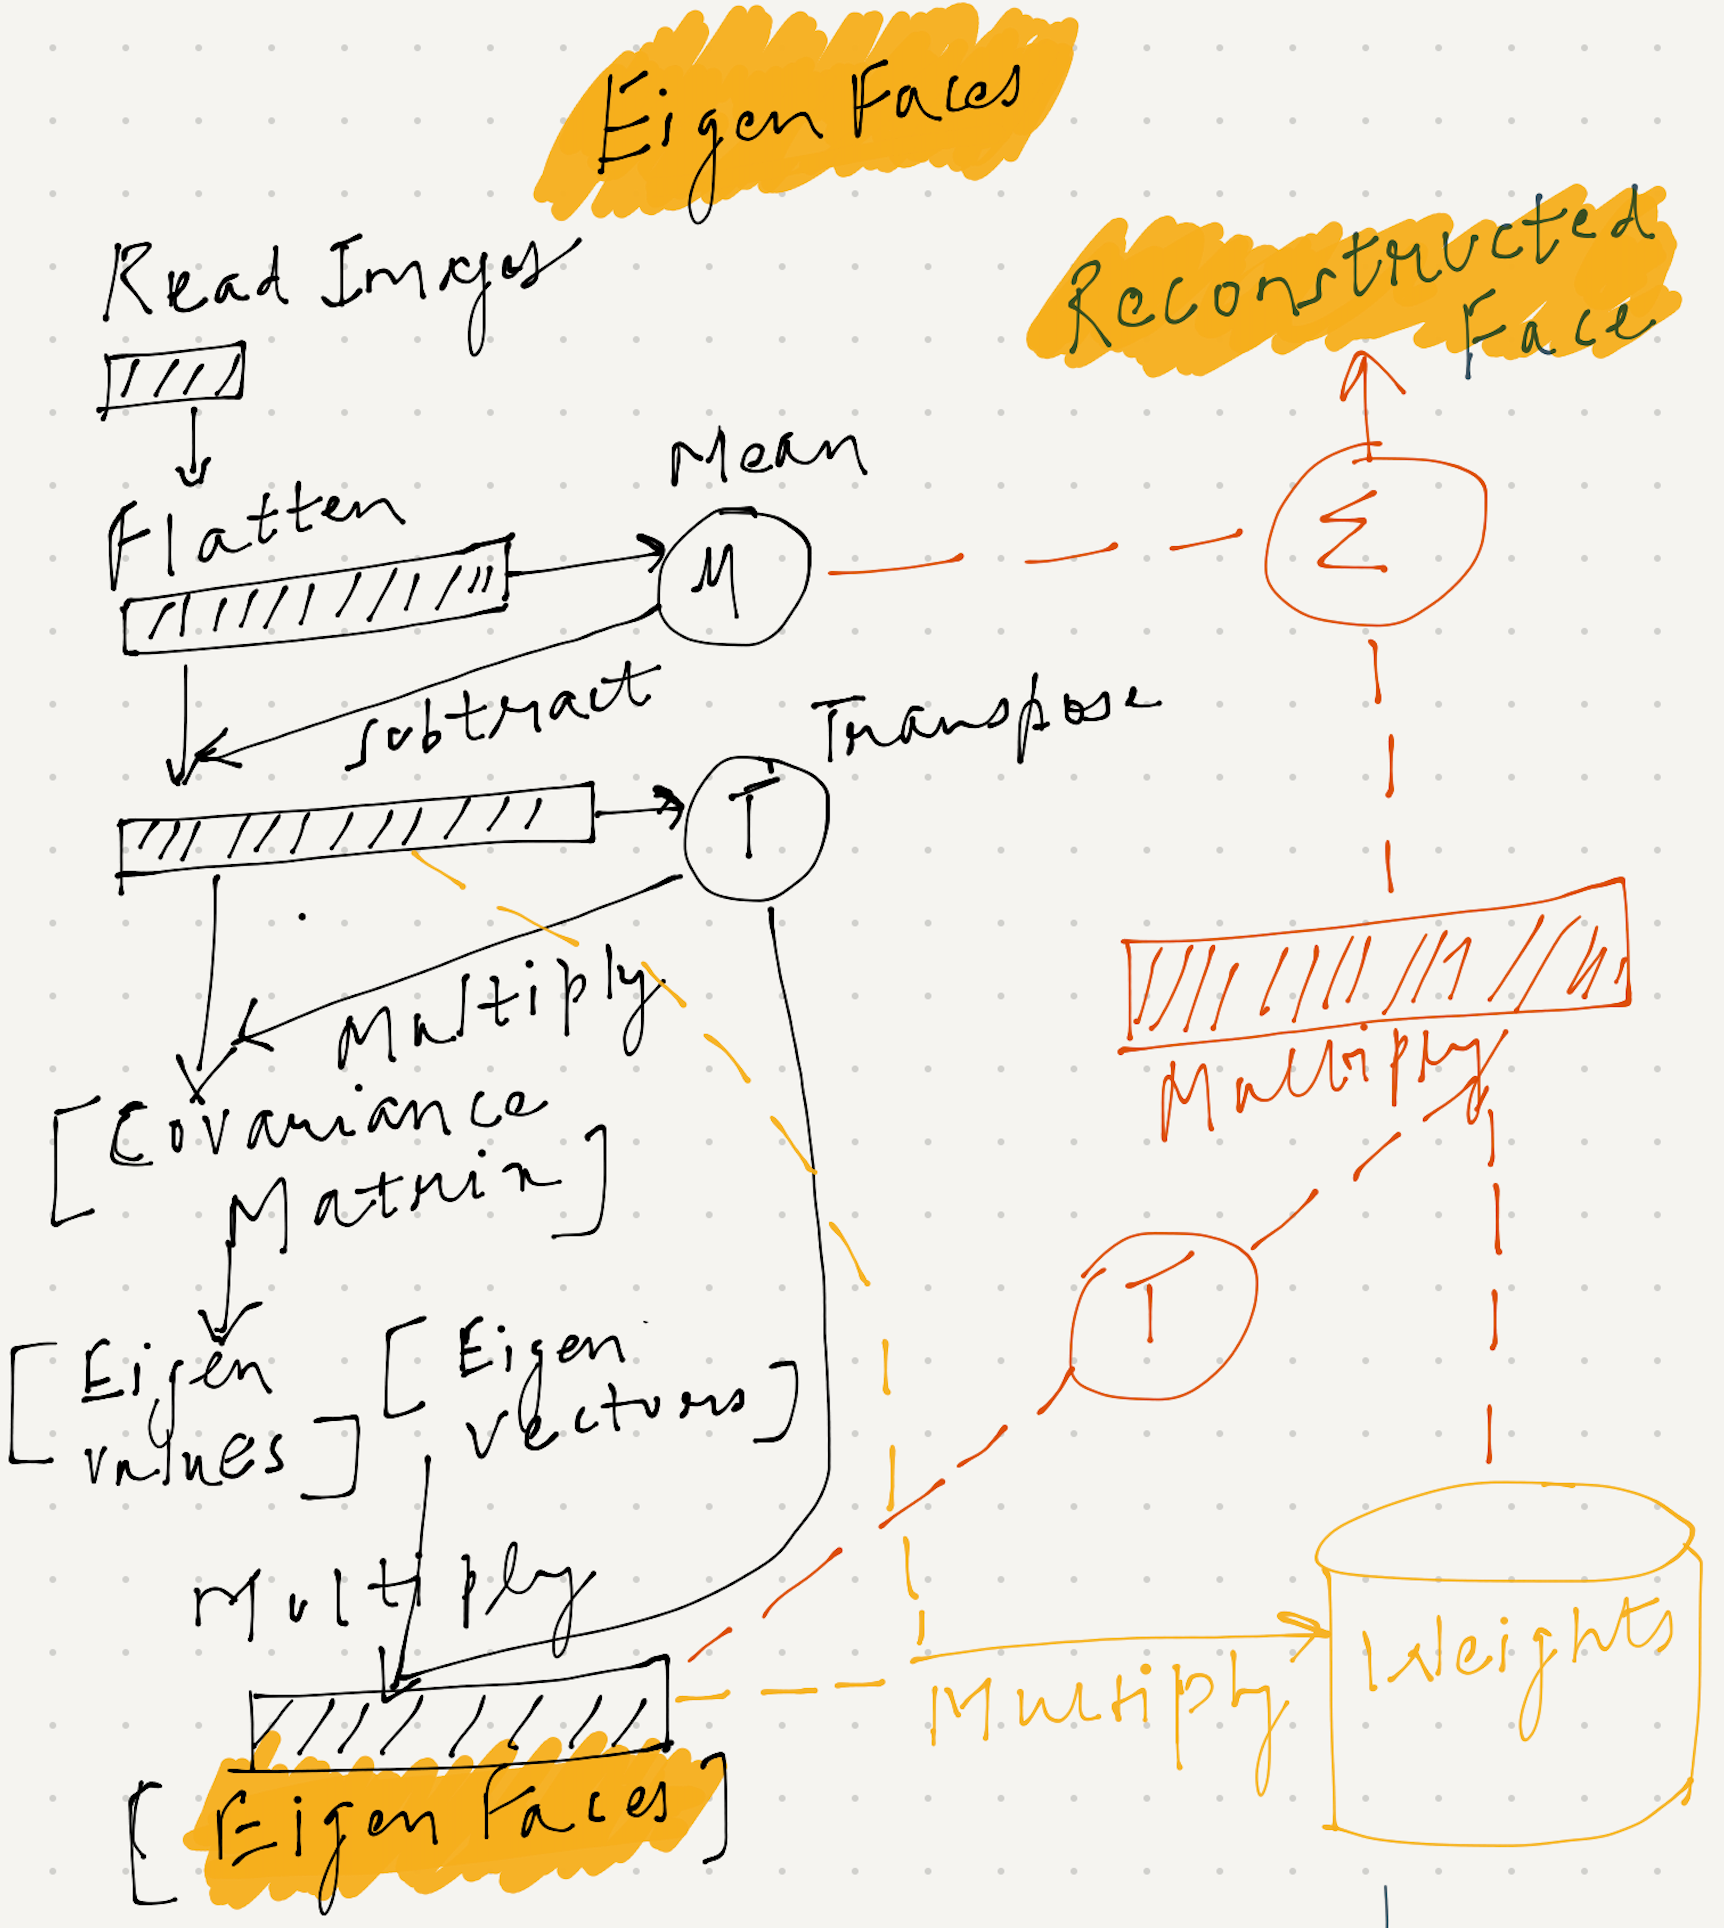 Eigen Faces
Read Images
Reconstructed
Face
Mean
Flatten
M
Σ
subtract
Transpose
T
Multiply
Multiply
[Covariance
Matrix]
T
[Eigen
values]
[Eigen
Vectors]
Multiply
Weights
Multiply
[Eigen Faces]